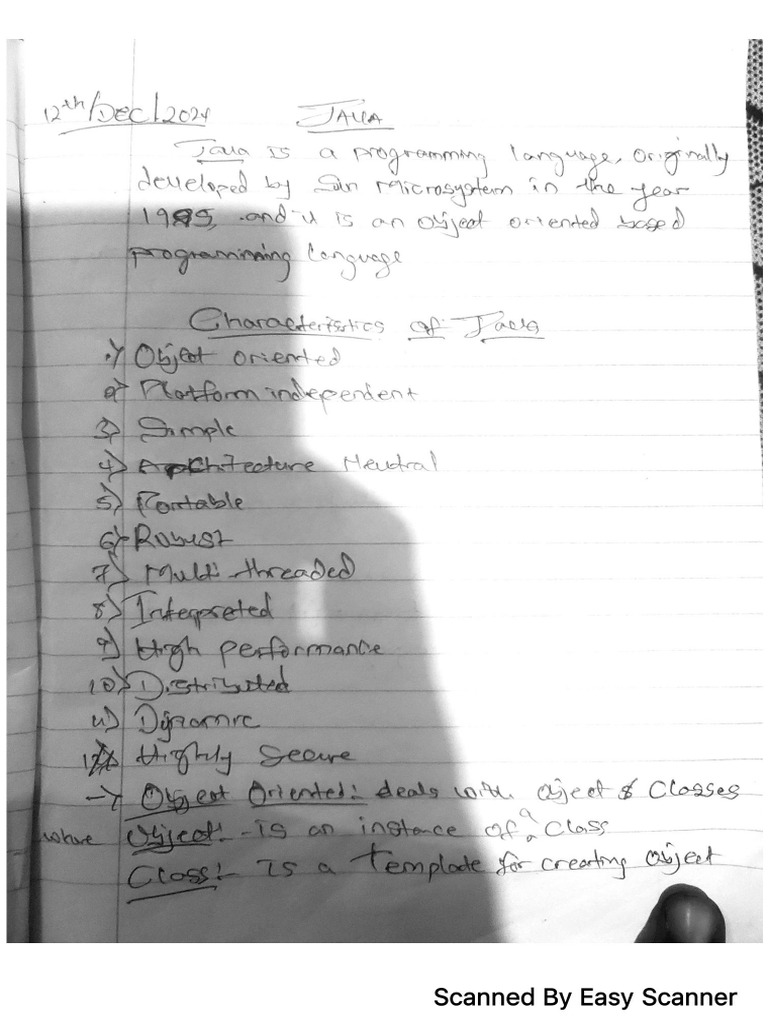 12th/Dec/2024 JAVA
Java is a programming language, originally
developed by Sun Microsystem in the year
1995, and it is an object oriented based
programming language
Characteristics of Java
1) Object oriented
2) Platform independent
3) Simple
4) Architecture Neutral
5) Portable
6) Robust
7) Multi threaded
8) Interpreted
9) High performance
10) Distributed
11) Dynamic
12) Highly Secure
→ Object Oriented:- deals with object & Classes
where Object:- is an instance of a Class
Class:- Is a Template for creating object
Scanned By Easy Scanner